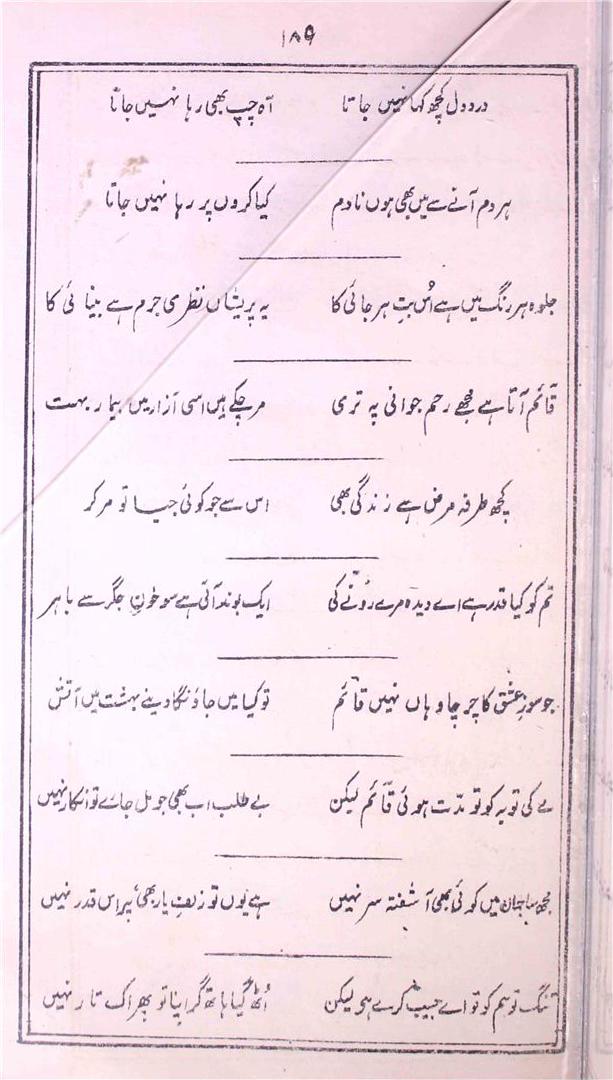 ۱۸۹
درد دل کچھ کہا نہیں جاتا آہ چپ بھی رہا نہیں جاتا
ہر دم آنے سے میں بھی ہوں نادم کیا کروں پر رہا نہیں جاتا
جلوہ ہر رنگ میں ہے اُس بتِ ہر جائی کا یہ پریشاں نظری جرم ہے بینائی کا
قائم آتا ہے مجھے رحم جوانی پہ تری مر چکے ہیں اسی آزار میں بیمار بہت
کچھ طرفہ مرض ہے زندگی بھی اس سے جو کوئی جیا تو مر کر
تم کو کیا قدر ہے اے دیدہ مرے رونے کی ایک بوند آتی ہے سو خونِ جگر سے باہر
جو سوزِ عشق کا چرچا وہاں نہیں قائم تو کیا میں جاؤنگا دینے بہشت میں آتش
مے کی توبہ کو تو مدّت ہوئی قائم لیکن بے طلب اب بھی جو مل جاے تو انکار نہیں
مجھ سا جہان میں کوئی بھی آشفتہ سر نہیں ہے یوں تو زلفِ یار بھی، پر اس قدر نہیں
تنگ تو ہم کو تو اے جیب کرے ہی لیکن اُٹھ گیا ہاتھ گر اپنا تو پھر اک تار نہیں